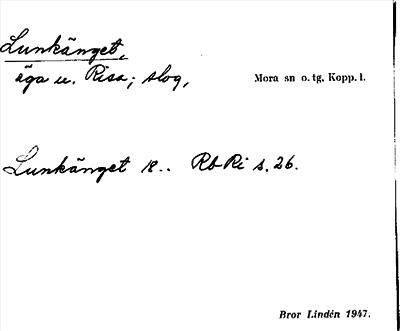 Lunkänget,
äga u. Risa; slog,
Mora sn o. tg, Kopp. l.
Lunkänget R.. Rb Ri s. 26.
Bror Lindén 1947.